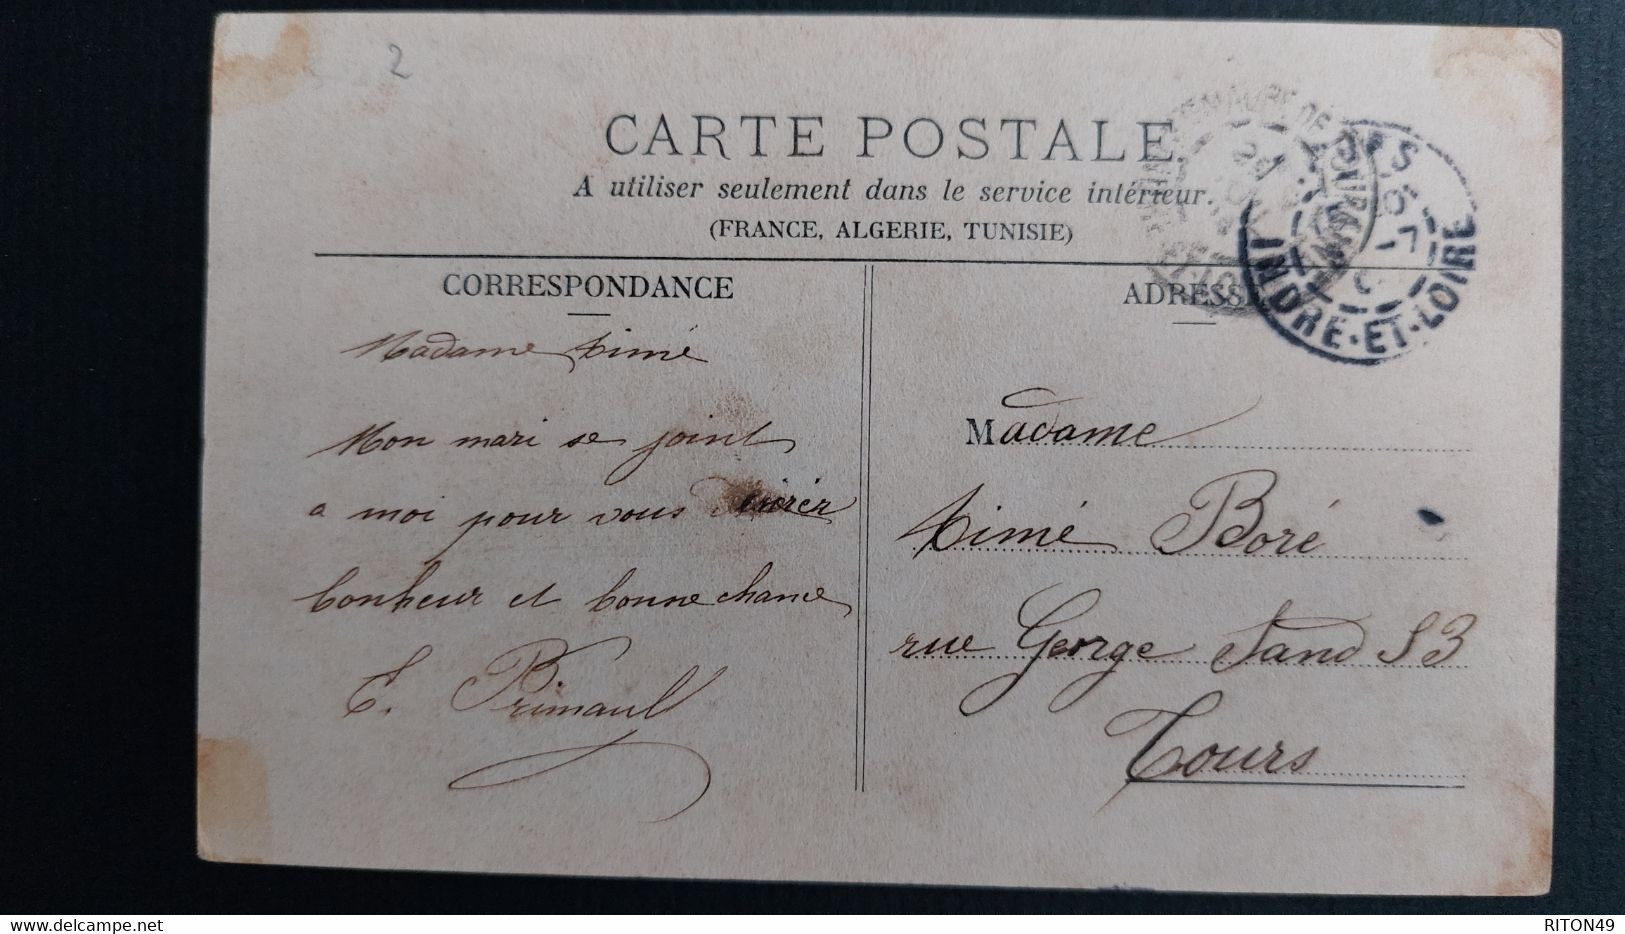 2
CARTE POSTALE
A utiliser seulement dans le service intérieur.
(FRANCE, ALGERIE, TUNISIE)
CORRESPONDANCE
Madame Aimé
Mon mari se joint
a moi pour vous
bonheur et bonne chance
E. Primault
ADRESSE
INDRE-ET-LOIRE
Madame
Aimé Boré
rue George Sand 53
Tours
delcampe.net
RITON49